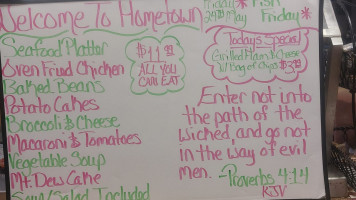 Welcome To Hometown
Friday * Fish
24th May Friday *
Seafood Platter
Oven Fried Chicken
Baked Beans
Potato Cakes
Broccoli & Cheese
Macaroni & Tomatoes
Vegetable Soup
Mt. Dew Cake
Soup/Salad Included
ALL YOU
CAN EAT
Todays Special
Grilled Ham & Cheese
w/ Bag of Chips
Enter not into
the path of the
wicked, and go not
in the way of evil
men. - Proverbs 4:14
KJV